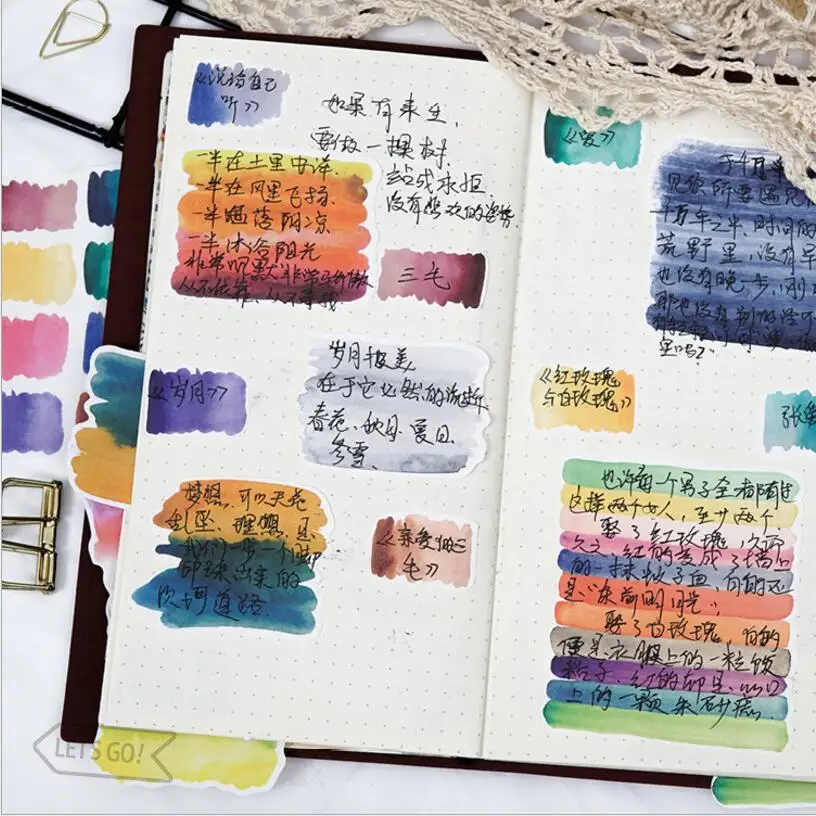 《说给自己
听》
如果有来生，
要做一棵树，
站成永恒.
没有悲欢的姿势
一半在土里安详.
一半在风里飞扬.
一半洒落阴凉
一半沐浴阳光
非常沉默、非常骄傲
从不依靠、从不寻找
三毛
《岁月》
岁月极美
在于它必然的流逝.
春花、秋月、夏日、
冬雪.
梦想，可以天花
乱坠、理想，是
我们一步一个脚
印踩出来的
坎坷道路.
《亲爱的三
毛》
《爱》
于千万年
见你所要遇见
万年之中，时间的
荒野里，没有早
也没有晚一步，刚
那也没有别的话可
里吗？
《红玫瑰
与白玫瑰》
张爱
也许每一个男子全都有过
这样两个女人，至少两个
娶了红玫瑰，久而
久之，红的变成了墙上
的一抹蚊子血，白的还
是"床前明月光"；
娶了白玫瑰，白的
便是衣服上的一粒饭
粘子，红的却是心口
上的一颗朱砂痣.
LET'S GO!